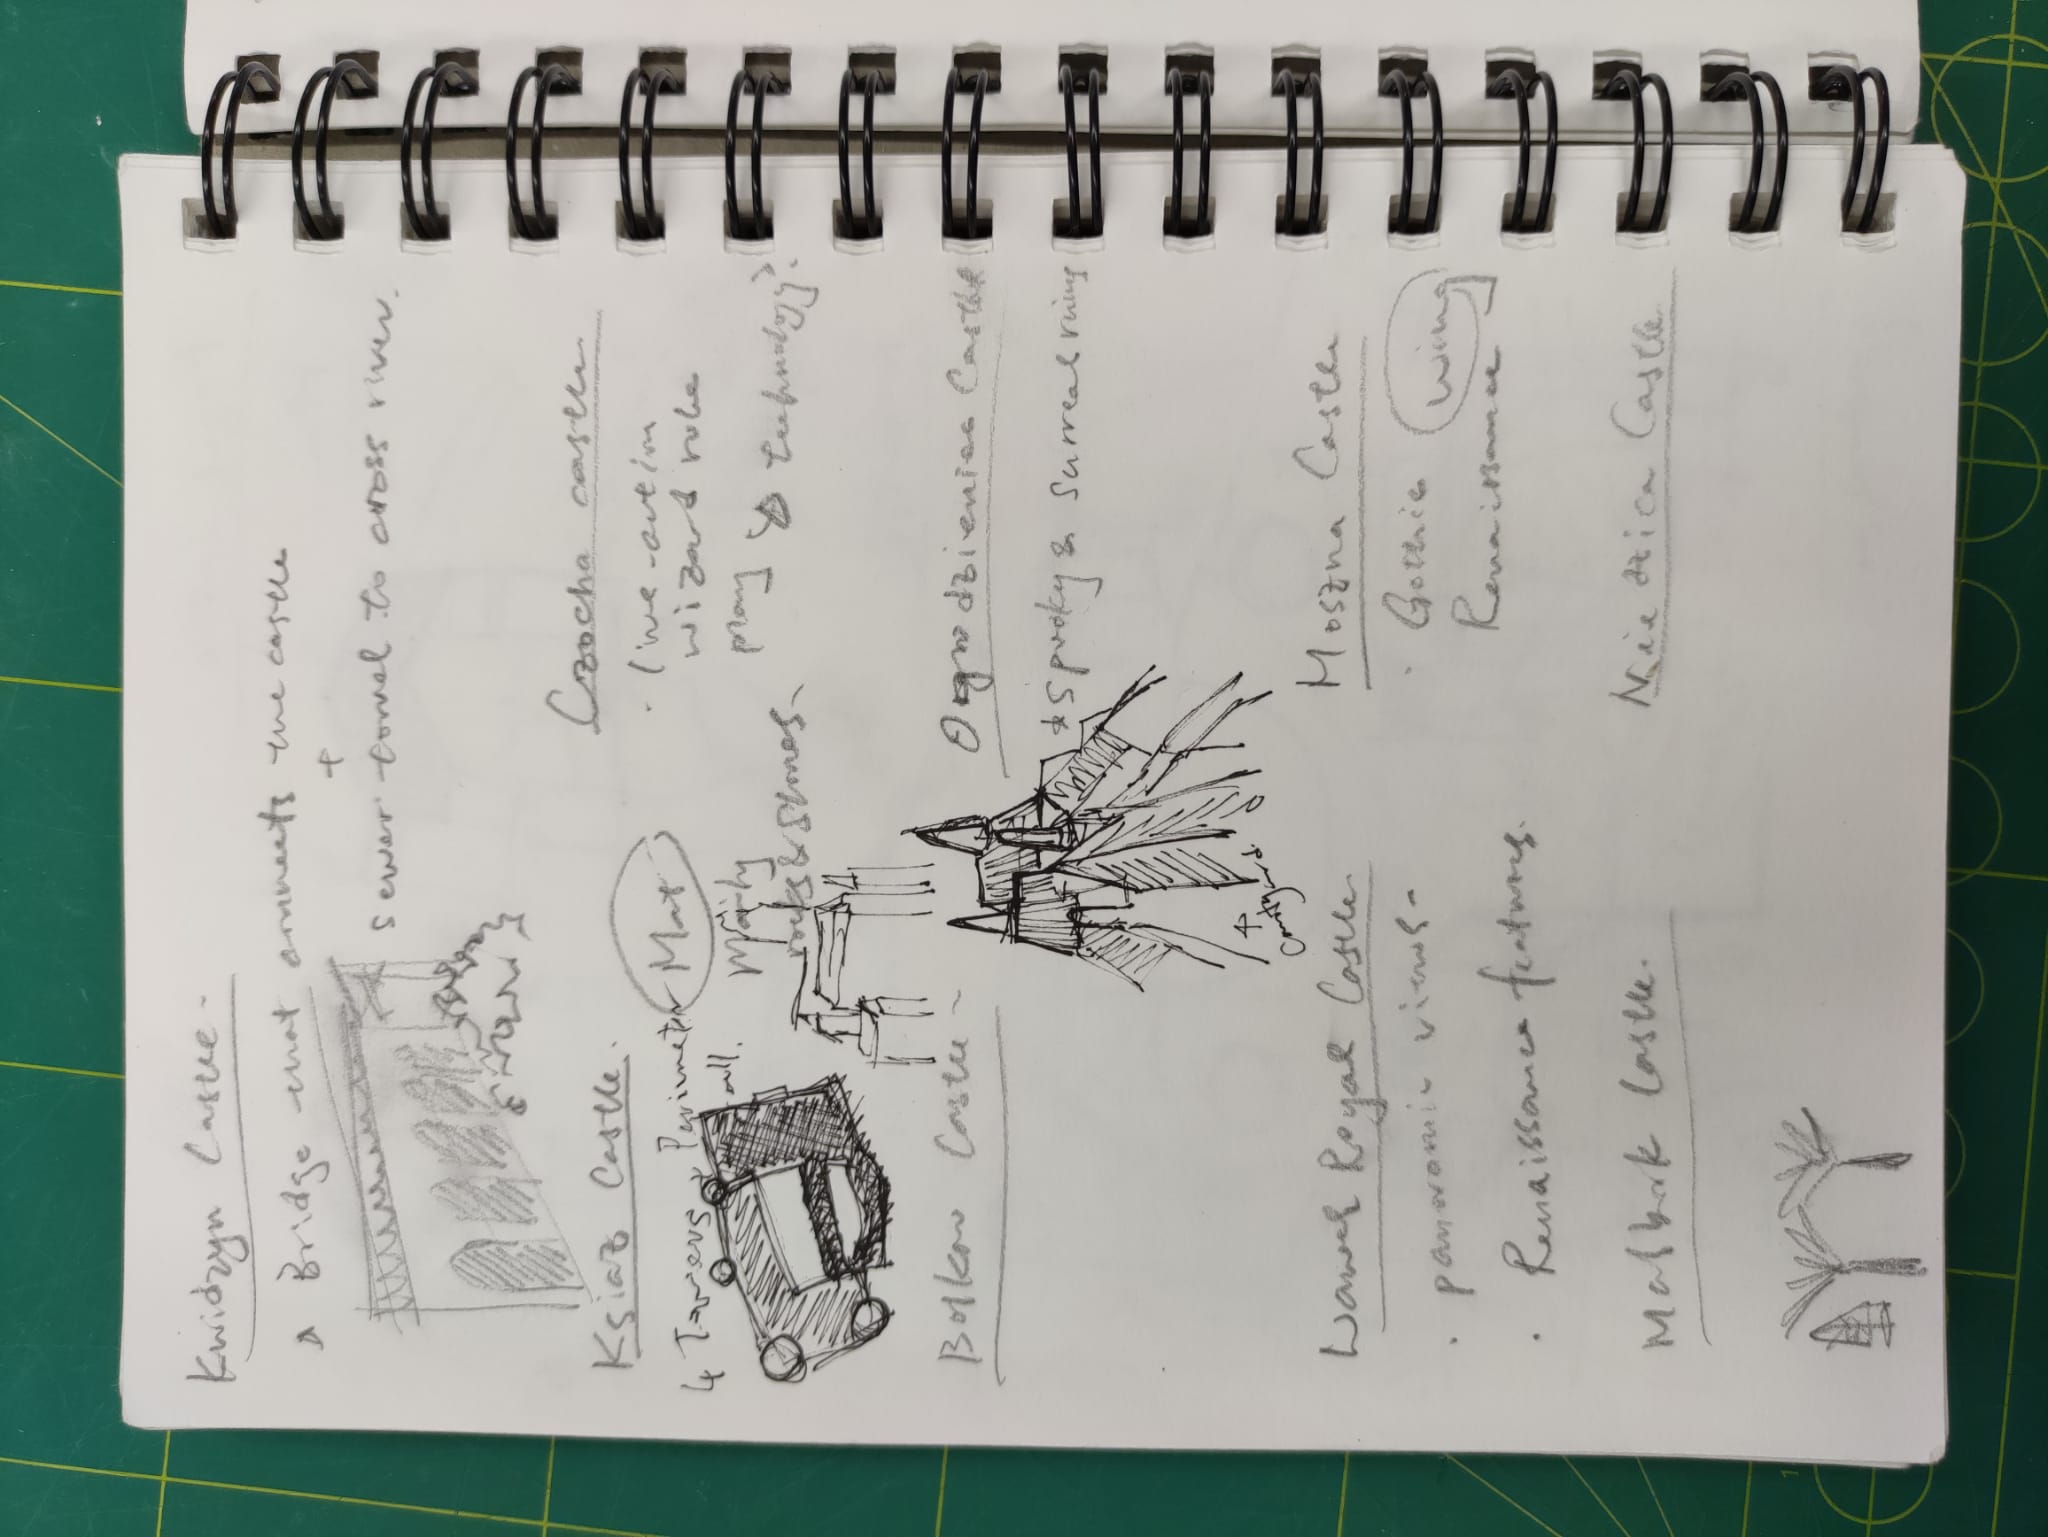 Kwidzyn Castle -
Bridge that connects the castle
+
sewer tunnel to cross river.
Czocha castle
· live-action
wizard role
play & technology?
Ksiaz Castle.
4 Towers Perimeter
wall.
Mat
Mainly
rocks & stones.
Bolkow Castle -
Ogrodzieniec Castle
* Spooky & Surreal ruins
↑
Courtyard.
Wawel Royal Castle
· panoromic views -
· Renaissance features.
Moszna Castle
· Gothic wing
Renaissance
Malbork Castle.
Niedzica Castle